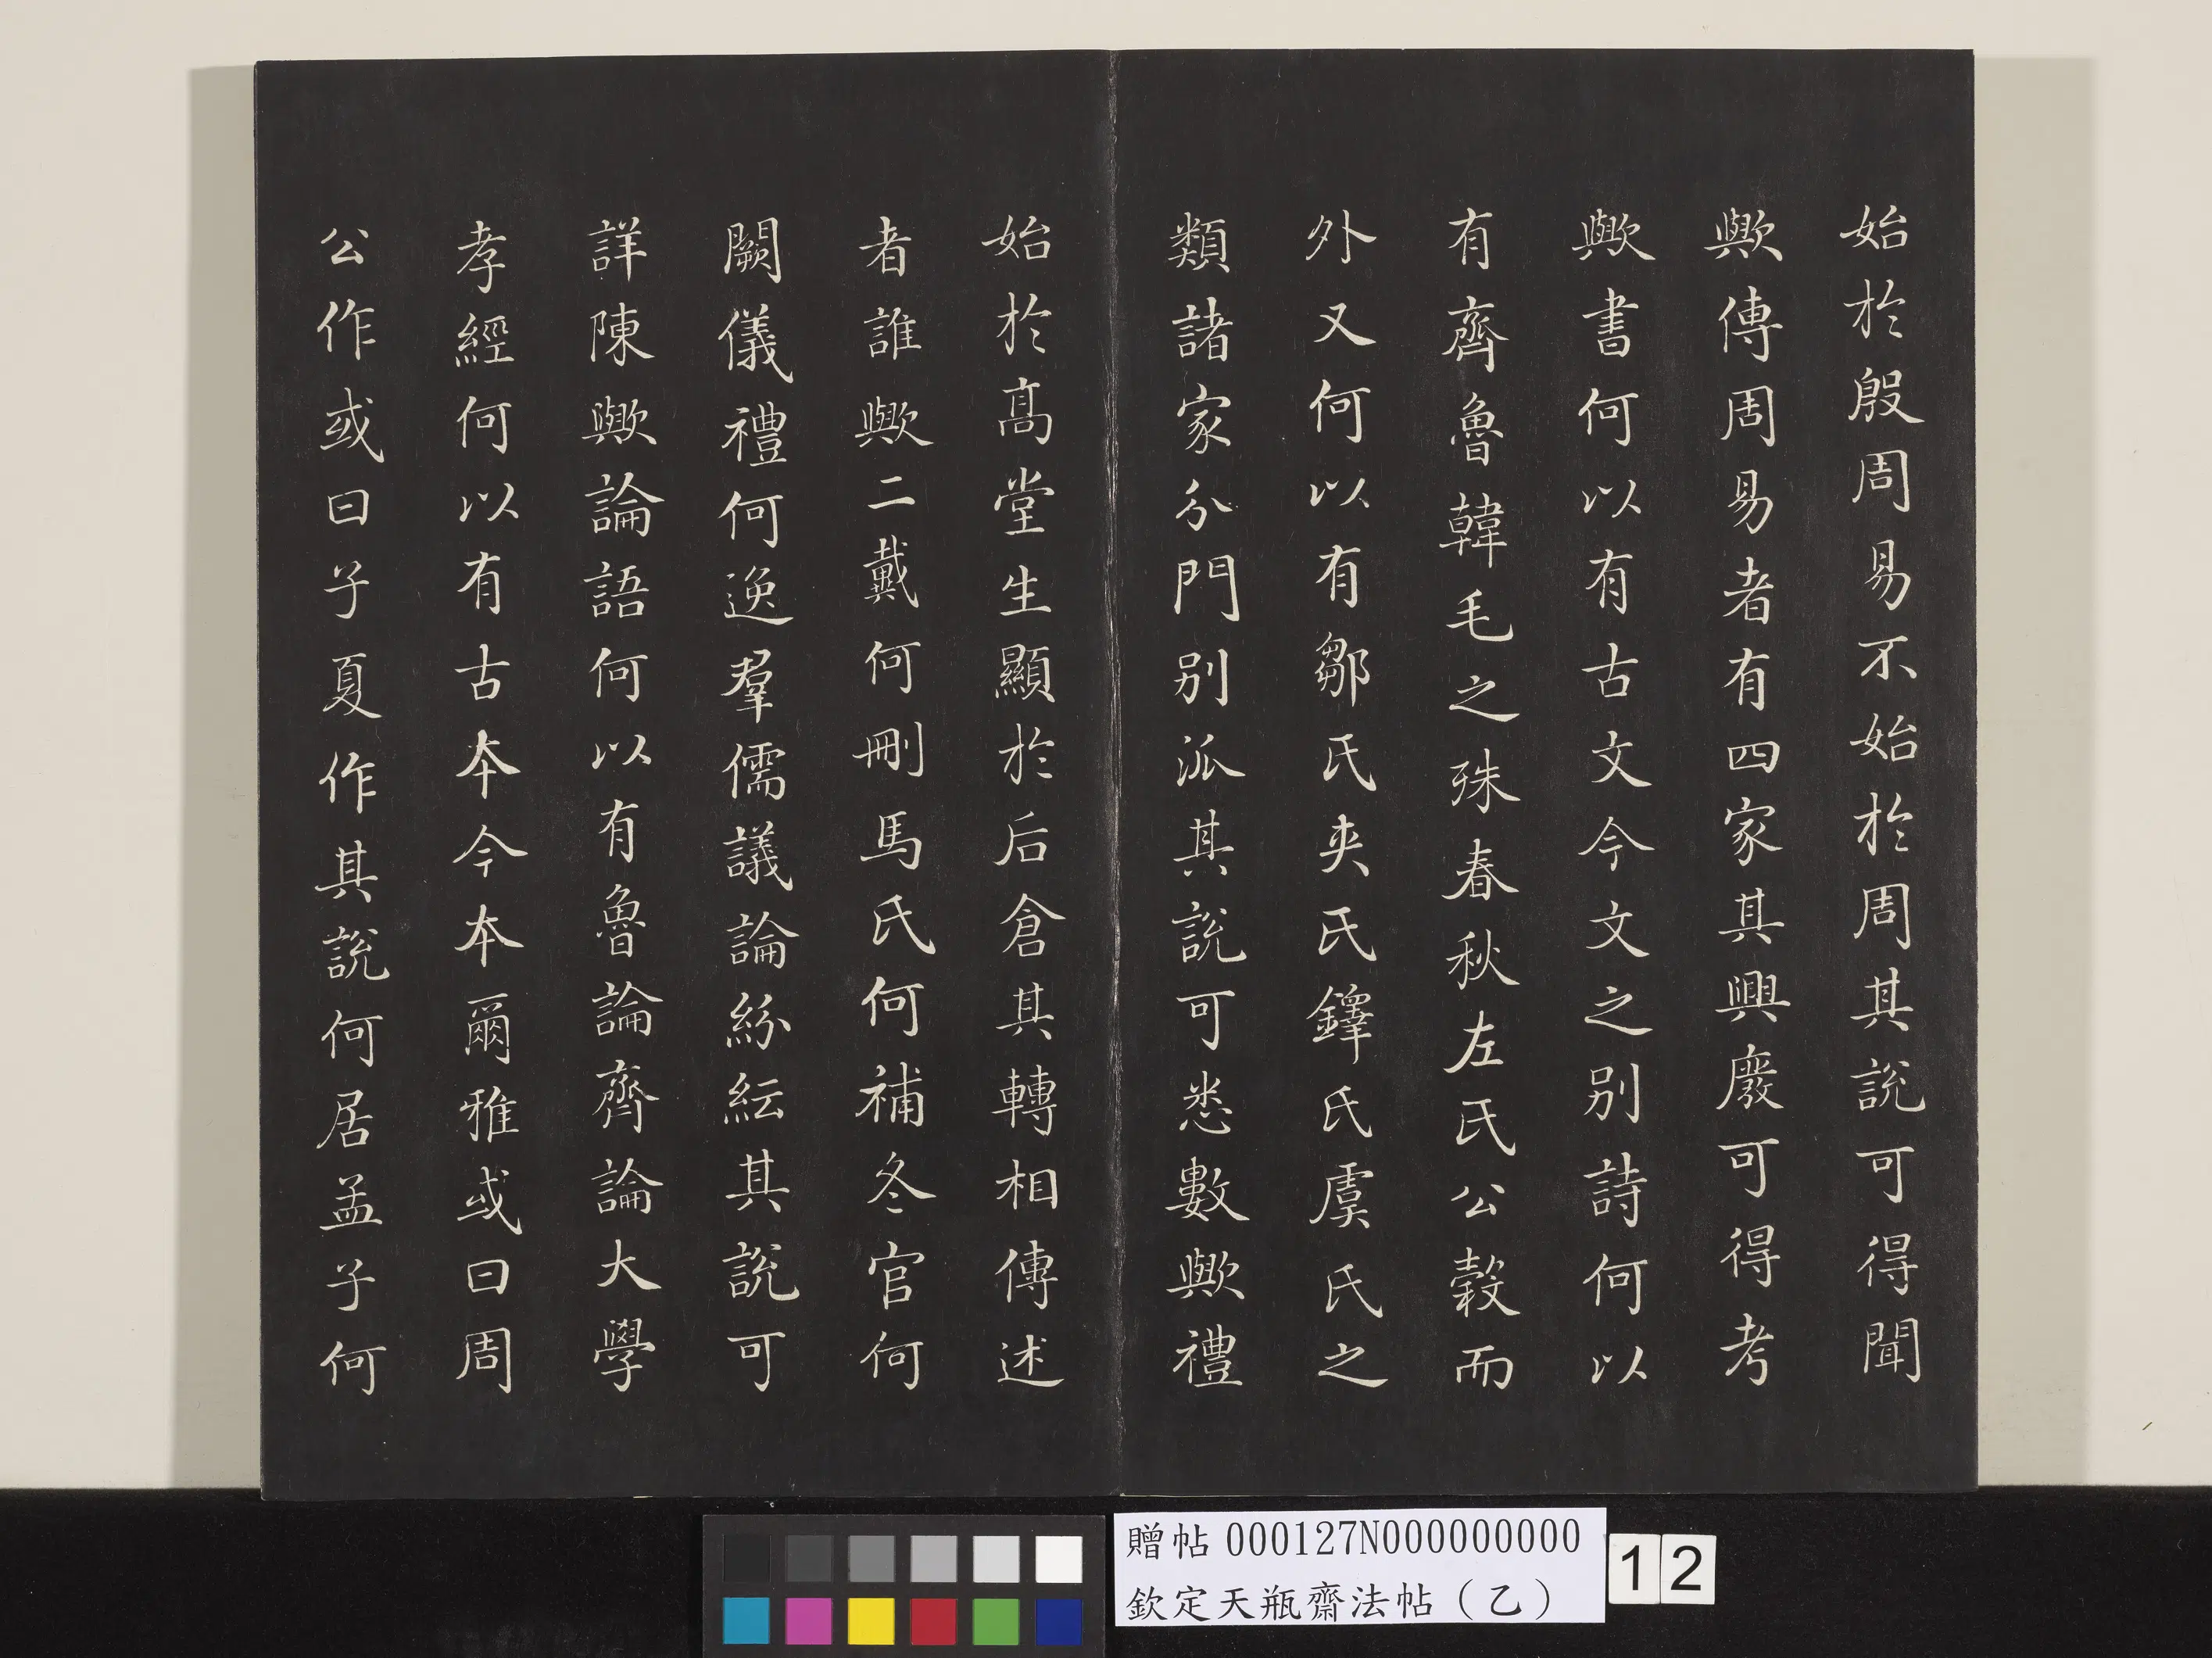 始於殷周易不始於周其說可得聞
歟傳周易者有四家其興廢可得考
歟書何以有古文今文之別詩何以
有齊魯韓毛之殊春秋左氏公穀而
外又何以有鄒氏夾氏鐸氏虞氏之
類諸家分門別派其說可悉數歟禮
始於高堂生顯於后倉其轉相傳述
者誰歟二戴何刪馬氏何補冬官何
闕儀禮何逸羣儒議論紛紜其說可
詳陳歟論語何以有魯論齊論大學
孝經何以有古本今本爾雅或曰周
公作或曰子夏作其說何居孟子何
贈帖 000127N000000000
欽定天瓶齋法帖（乙）
12